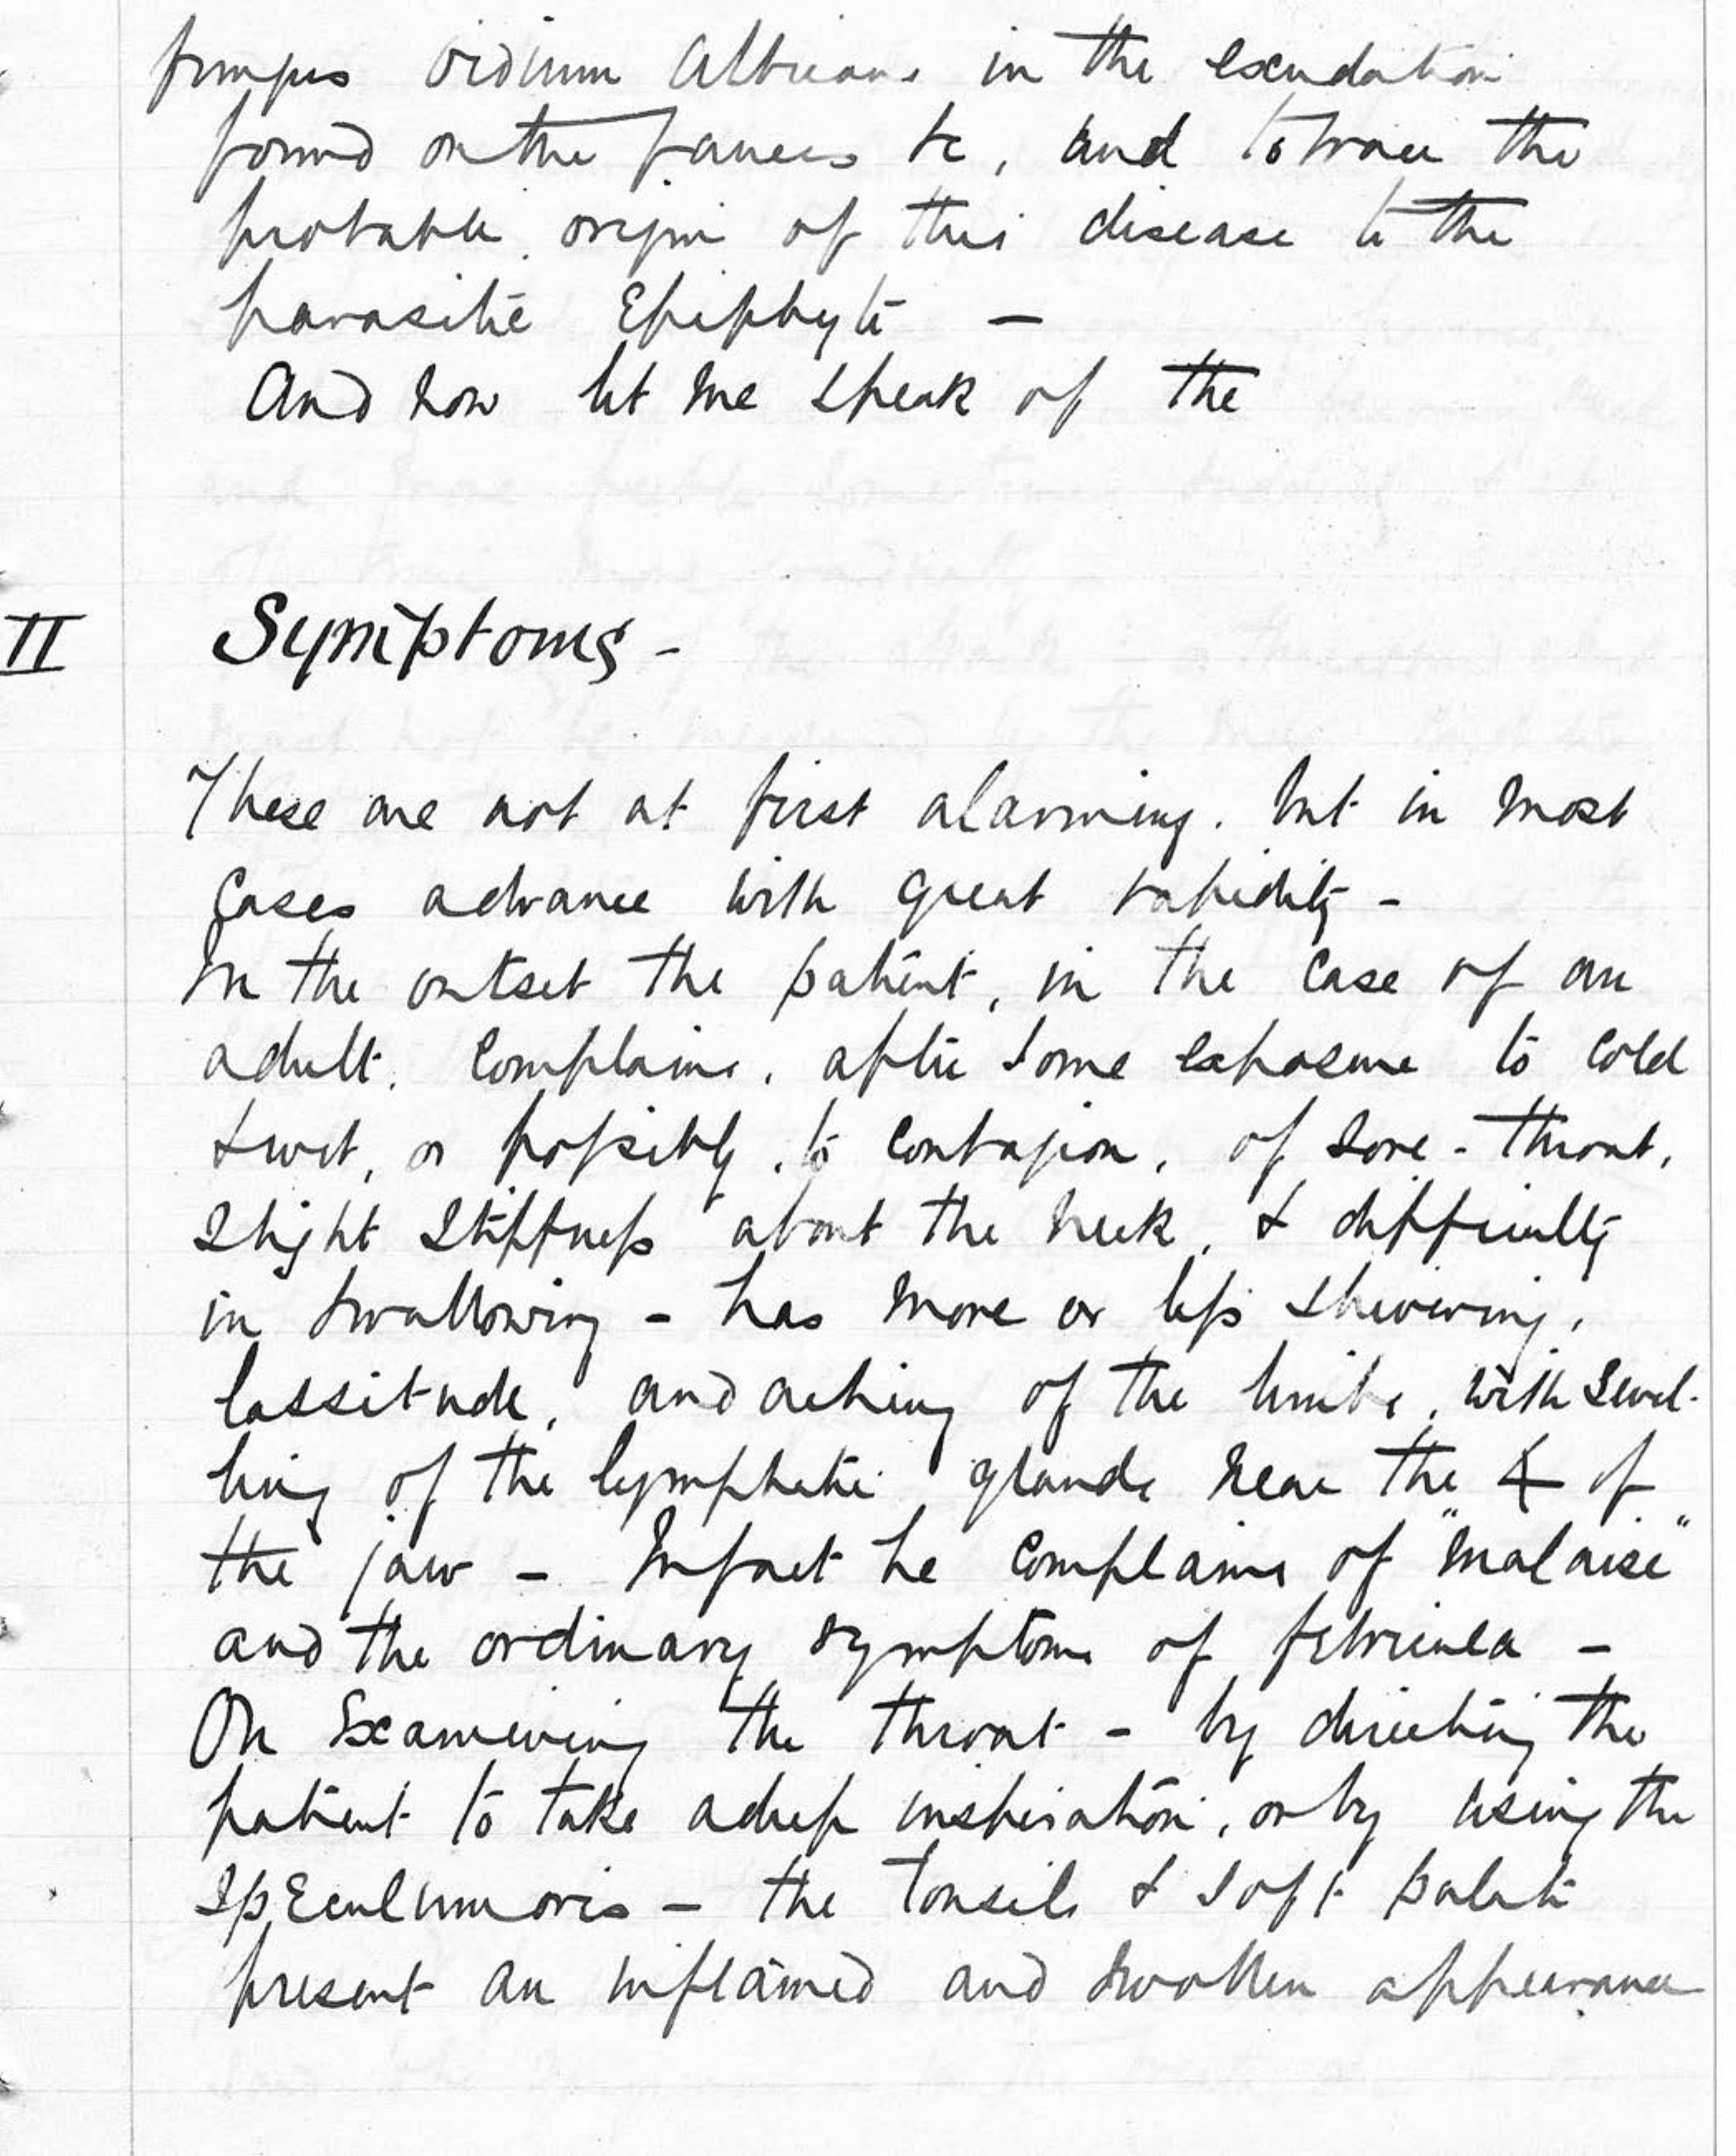 fungus Oidium Albicans in the exudation
found on the fauces &c, and to trace the
probable origin of this disease to the
parasitic Epiphyte —
And now let me speak of the
II Symptoms -
These are not at first alarming. but in most
Cases advance with great rapidity -
In the outset the patient, in the case of an
adult, Complains, after some exposure to cold
& wet, or possibly, to Contagion, of sore - throat,
slight stiffness about the neck, & difficulty
in swallowing - has more or less shivering,
lassitude, and aching of the limbs, with swel-
ling of the lymphatic glands near the ∠ of
the jaw - In fact he Complains of "malaise"
and the ordinary symptoms of febricula -
On Examining the throat - by directing the
patient to take a deep inspiration, or by using the
Speculum oris - the tonsils & soft palate
present an inflamed and swollen appearance